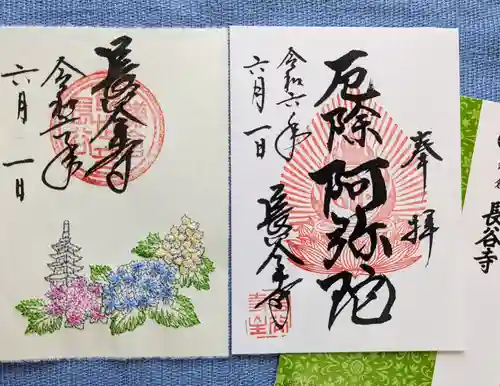 長谷寺
令和六年
六月一日
奉拝
厄除阿弥陀
令和六年
六月一日
長谷寺
長谷寺